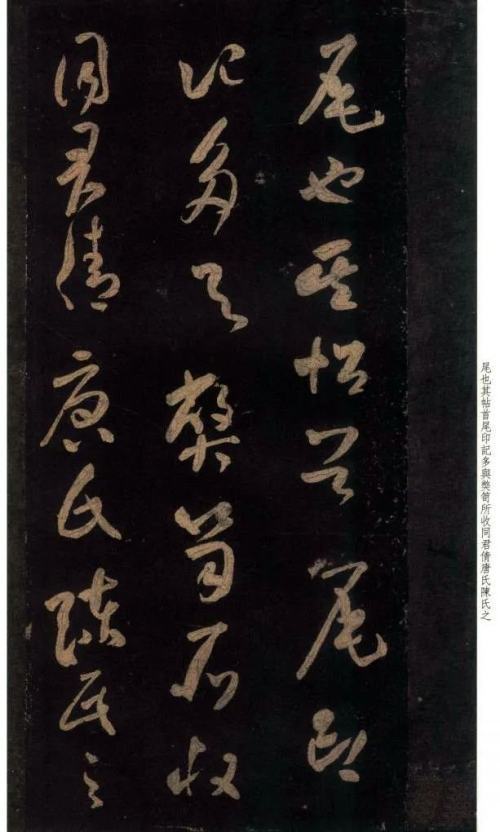 尾也其帖首尾印
記多與樊筍所收
同君倩唐氏陳氏之
尾也其帖首尾印記多與樊筍所收同君倩唐氏陳氏之